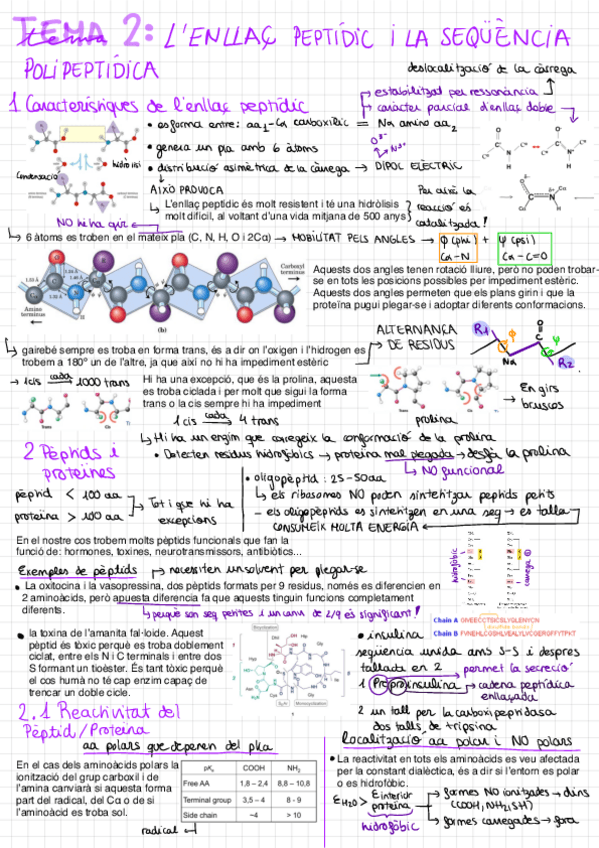 TEMA 2: L'ENLLAÇ PEPTÍDIC I LA SEQÜÈNCIA
POLIPEPTÍDICA
deslocalització de la càrrega
1 Característiques de l'enllaç peptídic
estabilitzat per ressonància
caràcter parcial d'enllaç doble
• es forma entre: aa1-Cα carboxílic = Nα amino aa2
• genera un pla amb 6 àtoms
• distribució asimètrica de la càrrega → DIPOL ELÈCTRIC
hidròlisi
Condensació
AIXÒ PROVOCA
L'enllaç peptidic és molt resistent i té una hidròlisis
molt difícil, al voltant d'una vida mitjana de 500 anys
Per això la
reacció es
catalitzada!
NO hi ha gir
6 àtoms es troben en el mateix pla (C, N, H, O i 2Cα) → MOBILITAT PELS ANGLES → φ (phi) + ψ (psi)
Cα-N
Cα-C=O
Carbonyl
terminus
Amino
terminus
(b)
Aquests dos angles tenen rotació lliure, però no poden trobar-
se en tots les posicions possibles per impediment estèric.
Aquests dos angles permeten que els plans girin i que la
proteïna pugui plegar-se i adoptar diferents conformacions.
gairebé sempre es troba en forma trans, és a dir on l'oxigen i l'hidrogen es
trobem a 180º un de l'altre, ja que així no hi ha impediment estèric
ALTERNANÇA
DE RESIDUS
R1
φ
ψ
Nα
R2
→ 1cis cada 1000 trans
Hi ha una excepció, que és la prolina, aquesta
es troba ciclada i per molt que sigui la forma
trans o la cis sempre hi ha impediment
1 cis cada 4 trans
prolina
En girs
bruscos
Hi ha un enzim que corregeix la conformació de la prolina
• Detecten residus hidrofòbics → proteïna mal plegada → desfà la prolina
NO funcional
2 Pèptids i
proteïnes
pèptid < 100 aa
proteïna > 100 aa
Tot i que hi ha
excepcions
• oligopèptid: 25-50aa
els ribosomes NO poden sintetitzar peptids petits
- els oligopèptids es sintetitzen en una seq → es talla
CONSUMEIX MOLTA ENERGIA
En el nostre cos trobem molts pèptids funcionals que fan la
funció de: hormones, toxines, neurotransmissors, antibiòtics...
Exemples de pèptids
necessiten un solvent per plegar-se
• La oxitocina i la vasopressina, dos pèptids formats per 9 residus, només es diferencien en
2 aminoàcids, però apuesta diferencia fa que aquests tinguin funcions completament
diferents.
perquè son seq petites i un canvi de 2/9 és significant!
hidrofòbic
• la toxina de l'amanita fal·loide. Aquest
pèptid és tòxic perquè es troba doblement
ciclat, entre els N i C terminals i entre dos
S formant un tioèster. És tant tòxic perquè
el cos humà no té cap enzim capaç de
trencar un doble cicle.
• insulina
Chain A GIVEQCCTSICSLYQLENYCN
Chain B FVNEHLCGSHLVEALYLVCGERGFFYTPKT
seqüència unida amb S-S i despres
tallada en 2
permet la secreció
1 Preproinsulina → cadena peptídica
enllaçada
2 un tall per la carboxipeptidasa
dos talls de tripsina
2.1 Reactivitat del
Pèptid/Proteïna
aa polars que depenen del pKa
En el cas dels aminoàcids polars la
ionització del grup carboxil i de
l'amina canviarà si aquesta forma
part del radical, del Cα o de si
l'aminoàcid es troba sol.
radical
pKa COOH NH2
Free AA 1,8 – 2,4 8,8 – 10,8
Terminal group 3,5 – 4 8 - 9
Side chain ~4 > 10
Localització aa polar i NO polars
• La reactivitat en tots els aminoàcids es veu afectada
per la constant dialèctica, és a dir si l'entorn es polar
o es hidrofòbic.
εH2O > εinterior
proteïna
hidrofòbic
formes NO ionitzades → dins
(COOH, NH2, SH)
formes carregades → fora